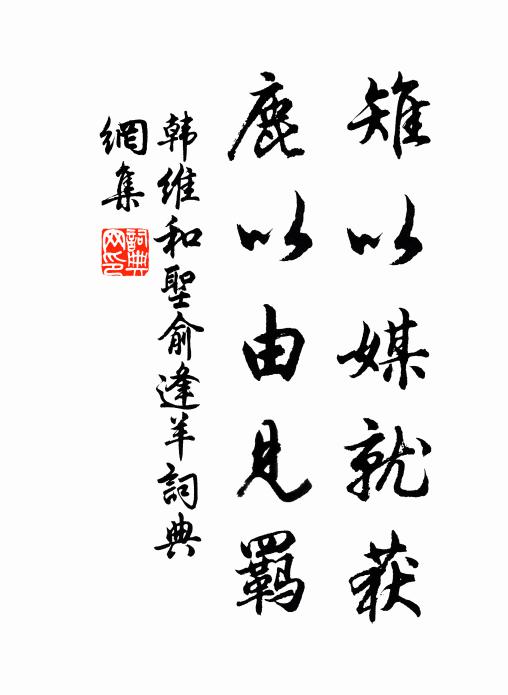 雉以媒就获
鹿以由见羁
韩维和聖俞逢羊詞典
網集
詞典網印